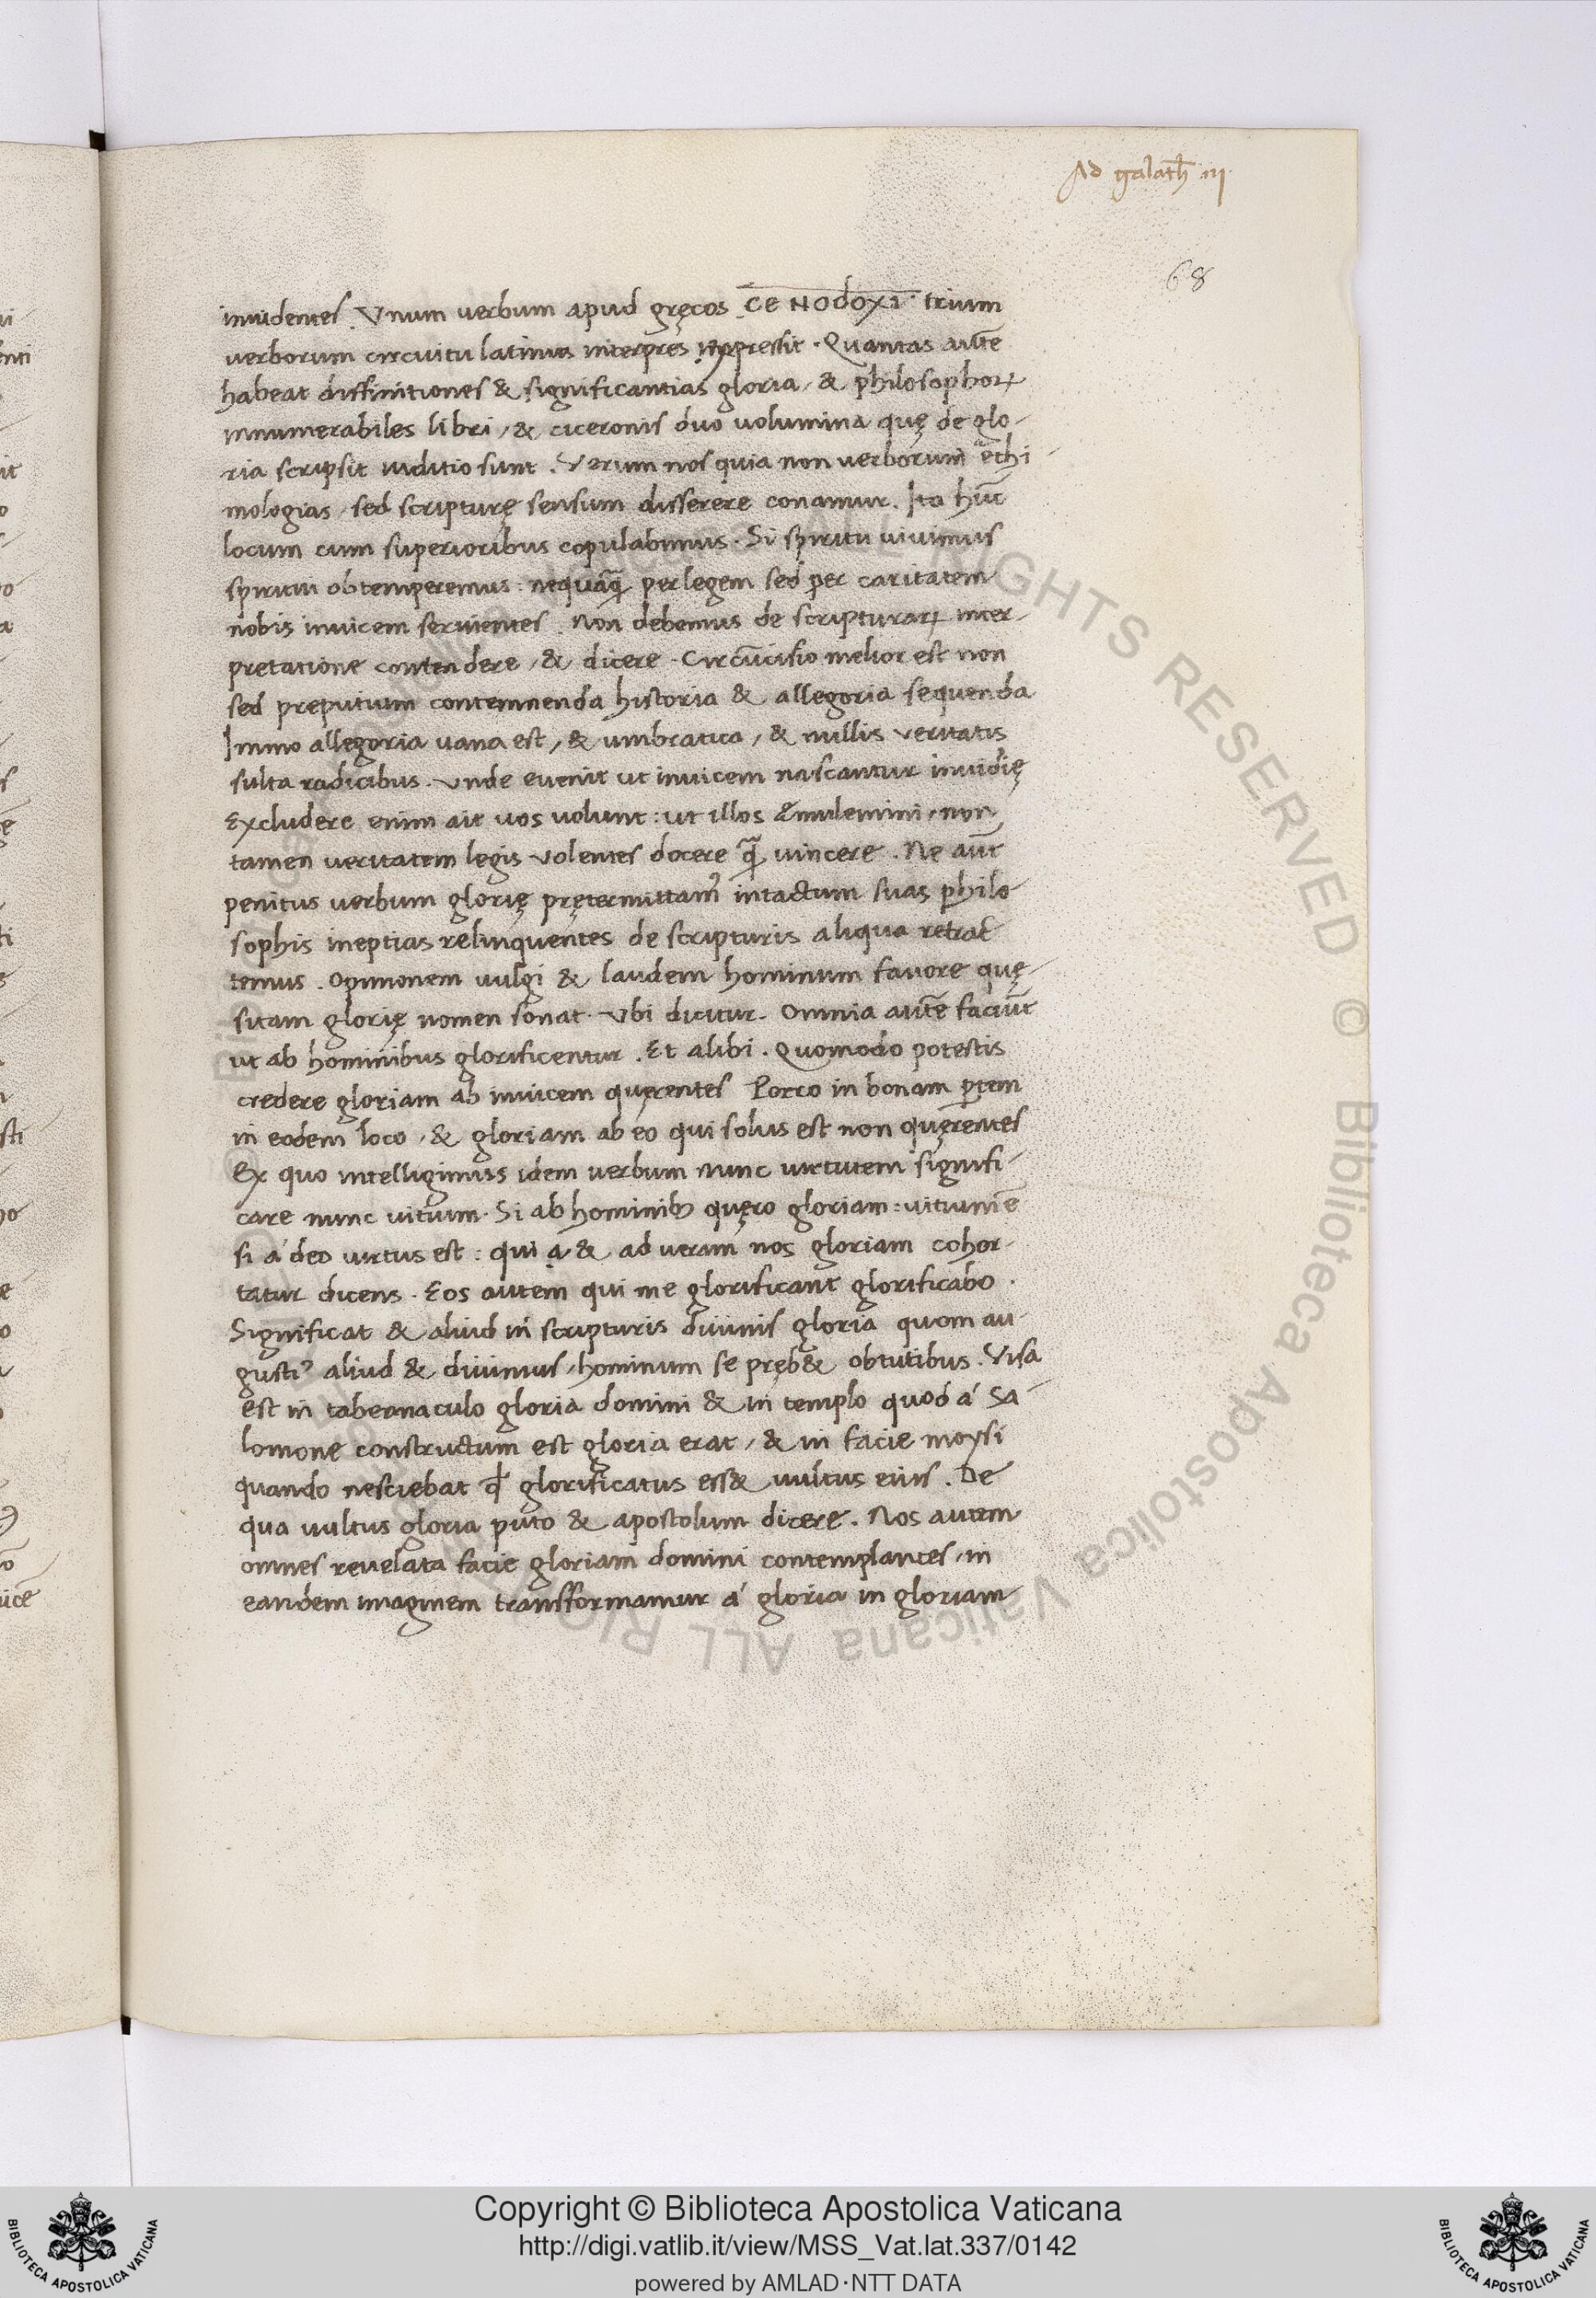 Ad galath̄ iii
68
inuidentes. Vnum verbum apud gręcos CENODOXI trium
verborum circuitu latinus interpres expressit. Quantas autē
habeat diffinitiones & significantias gloria, & philosophoꝝ
innumerabiles libri, & ciceronis duo uolumina quę de glo-
ria scripsit inditio sunt. Verum nos quia non verborum ethi-
mologias, sed scripturę sensum disserere conamur. Ita hūc
locum cum superioribus copulabimus. Si spiritu uiuimus
spiritui obtemperemus: nequaꝙ̄ per legem sed per caritatem
nobis inuicem seruientes. Non debemus de scripturaꝝ inter-
pretatione contendere, & dicere. Circūcisio melior est non
sed preputium contemnenda historia & allegoria sequenda
Immo allegoria uana est, & umbratica, & nullis veritatis
fulta radicibus. Vnde euenit ut inuicem nascantur inuidię
Excludere enim ait uos uolunt: ut illos æmulemini, non
tamen veritatem legis volentes docere ꝙ̄ uincere. Ne aūt
penitus verbum glorię prętermittam᾽ intactum suas philo-
sophis ineptias relinquentes de scripturis aliqua retrac-
temus. Opinionem uulgi & laudem hominum fauore quę-
sitam glorię nomen sonat. Vbi dicitur. Omnia autē faciūt
ut ab hominibus glorificentur. Et alibi. Quomodo potestis
credere gloriam ab inuicem quęrentes Porro in bonam ꝑtem
in eodem loco, & gloriam ab eo qui solus est non quęrentes
Ex quo intelligimus idem uerbum nunc uirtutem signifi-
care nunc uitium. Si ab hominibꝫ quęro gloriam: uitium ē
si á deo uirtus est: qui a & ad ueram nos gloriam cohor-
tatur dicens. Eos autem qui me glorificant glorificabo.
Significat & aliud in scripturis diuinis gloria quom au-
gusti᾽ aliud & diuinius, hominum se pręb& obtutibus. Visa
est in tabernaculo gloria domini & in templo quod á Sa-
lomone constructum est gloria erat, & in facie moysi
quando nesciebat ꝙ glorificatus ess& uultus eius. De
qua uultus gloria puto & apostolum dicere. Nos autem
omnes reuelata facie gloriam domini contemplantes, in
eandem imaginem transformamur á gloria in gloriam
Copyright © Biblioteca Apostolica Vaticana
http://digi.vatlib.it/view/MSS_Vat.lat.337/0142
powered by AMLAD·NTT DATA